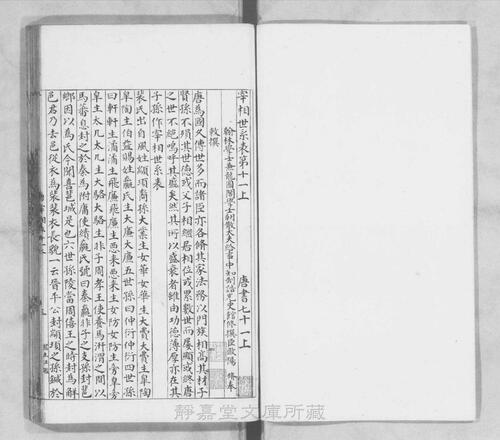 宰相世系表第十一上　唐書七十一上
翰林學士兼龍圖閣學士朝散大夫給事中知制誥充史館脩撰臣歐陽　脩奉
敕撰
唐爲國久傳世多而諸臣亦各脩其家法務以門族相高其材子
賢孫不殞其世德或父子相繼居相位或累數世而屢顯或終唐
之世不絕嗚呼其亦盛矣然其所以盛衰者雖由功德薄厚亦在其
子孫作宰相世系表
裴氏出自風姓顓頊裔孫大業生女華女華生大費大費生皋陶
皋陶生伯益賜姓嬴氏生大廉大廉五世孫曰仲衍仲衍四世孫
曰軒軒生潏潏生飛廉飛廉生惡來惡來生女防女防生旁皋旁
皋生太几太几生大駱大駱生非子周孝王使養馬汧渭之間以
馬蕃息封之於秦爲附庸使續嬴氏號曰秦嬴非子之支孫封𨛬
鄉因以爲氏今聞喜𨛬城是也六世孫陵當周僖王之時封爲解
邑君乃去邑從衣爲裴裴衣長貌一云晉平公封顓頊之孫鍼於
靜嘉堂文庫所藏